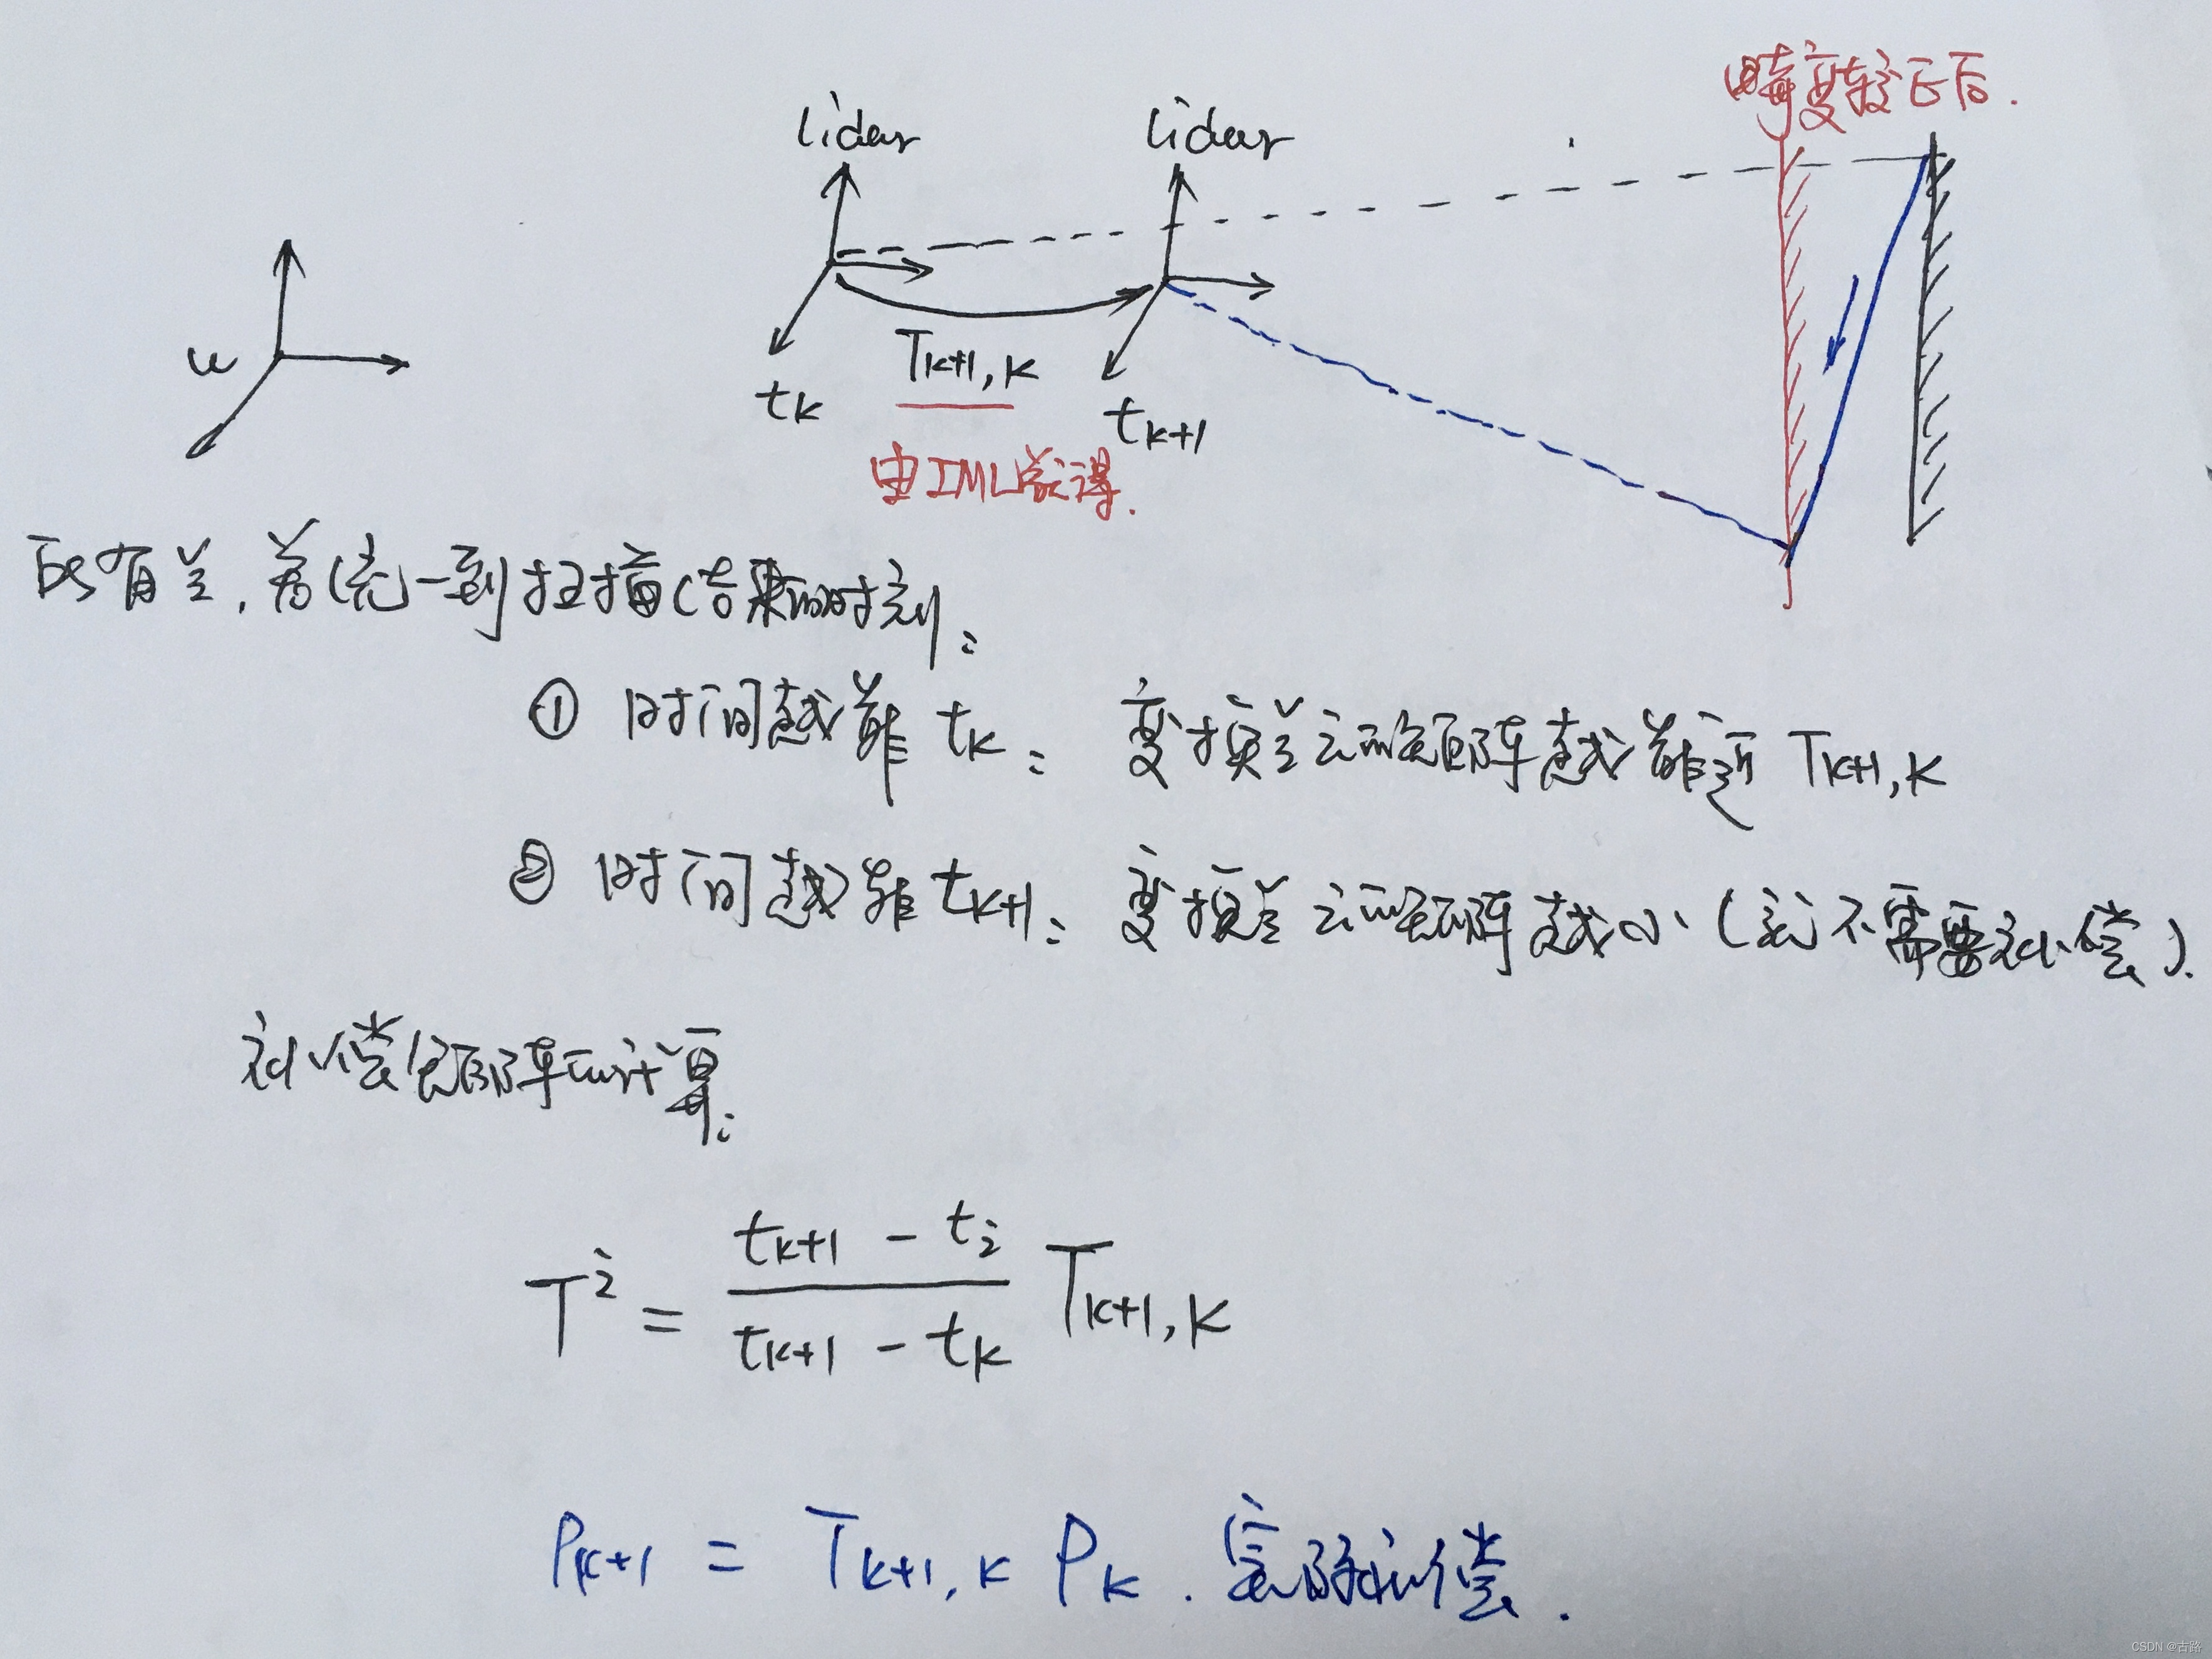 畸变较正后.
lidar lidar
w
Tk+1,k
tk tk+1
由IMU获得.
所有点,若统一到扫描结束的时刻:
① 时间越靠 tk: 变换点云的矩阵越靠近 Tk+1,k
② 时间越靠 tk+1: 变换点云的矩阵越小(就不需要补偿).
补偿矩阵的计算:
T^i = (tk+1 - ti)/(tk+1 - tk) Tk+1,k
Pk+1 = Tk+1,k Pk . 实际补偿.
CSDN @古路